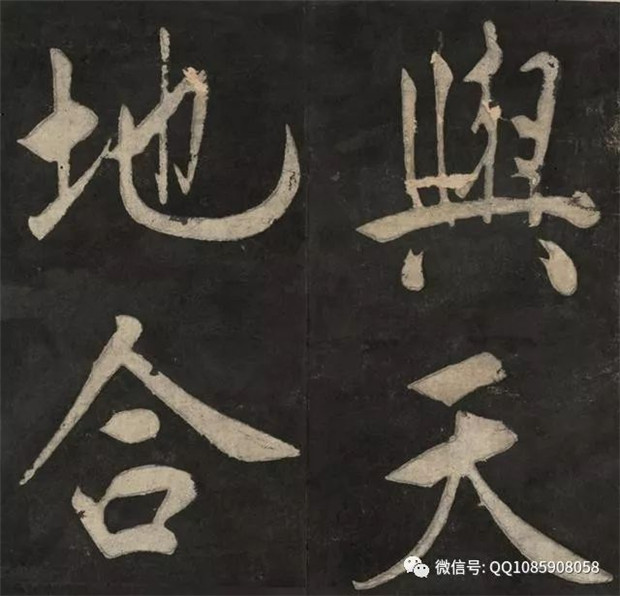 與天
地合
微信号: QQ1085908058